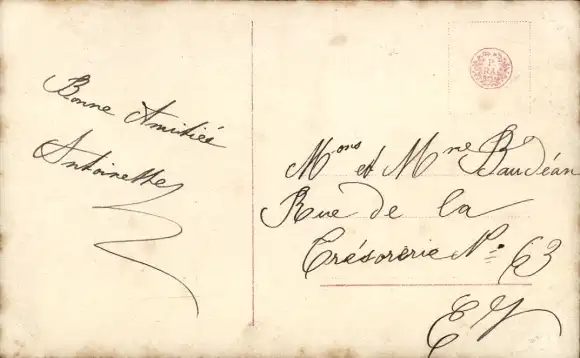 Bonne Amitiée
Antoinette
Mons et Mme Baudéan
Rue de la
Trésorerie No 63
E V